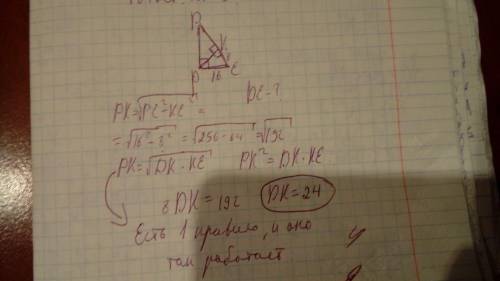 D
K
P 16 E
PK=√PE²-KE² = DE-?
=√16²-8² = √256-64 = √192
PK=√DK·KE PK²=DK·KE
8DK=192 DK=24
Есть 1 правило, и оно
там работает